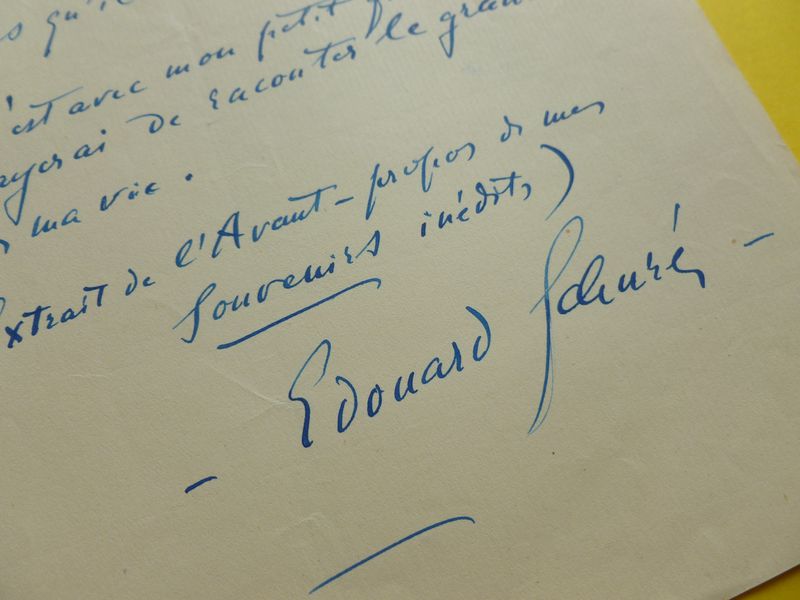 s qu'il
'est avec mon petit
ayerai de raconter le gran
ma vie.
Extrait de l'Avant-propos de mes
Souvenirs inédits)
- Edouard Schuré -